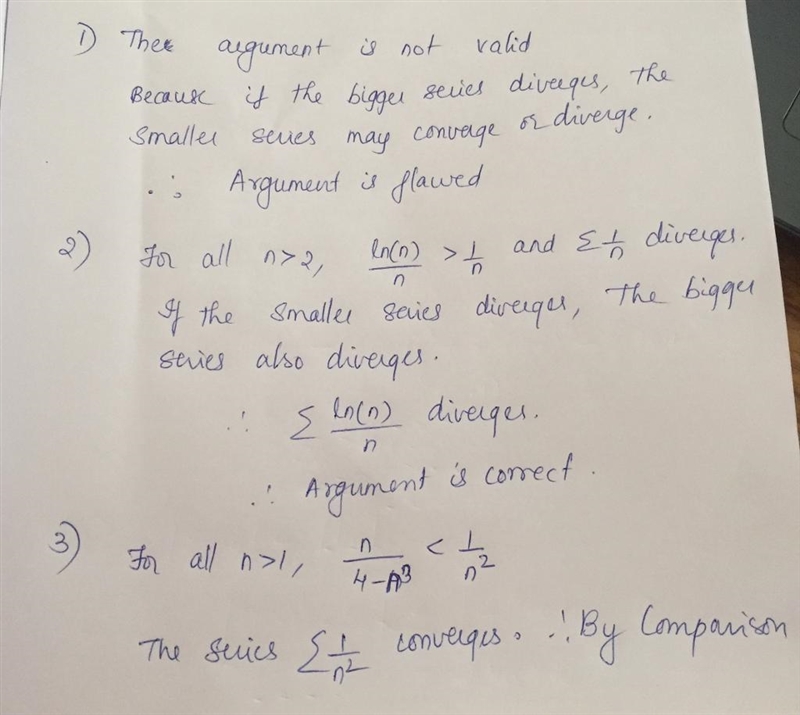 1) The argument is not valid
Because if the bigger series diverges, the
smaller series may converge or diverge.
∴ Argument is flawed
2) For all n>2, ln(n)/n > 1/n and Σ 1/n diverges.
If the smaller series diverges, The bigger
series also diverges.
∴ Σ ln(n)/n diverges.
∴ Argument is correct.
3) For all n>1, n/(4-n³) < 1/n²
The series Σ 1/n² converges. ∴ By Comparison